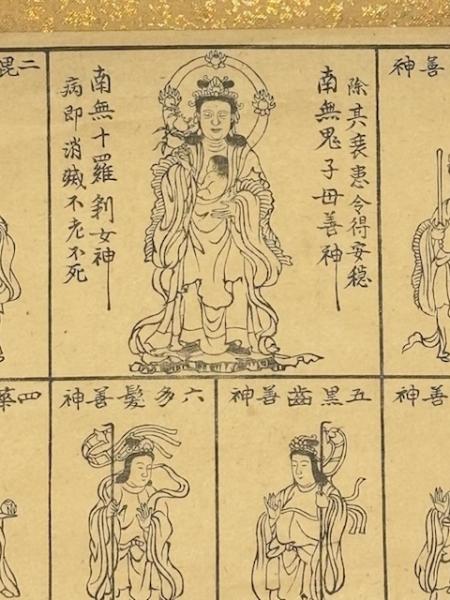 善神
除其衰患令得安穏
南無鬼子母善神
南無十羅刹女神
病即消滅不老不死
二毘
善神
五黒齒善神
六多髮善神
四華